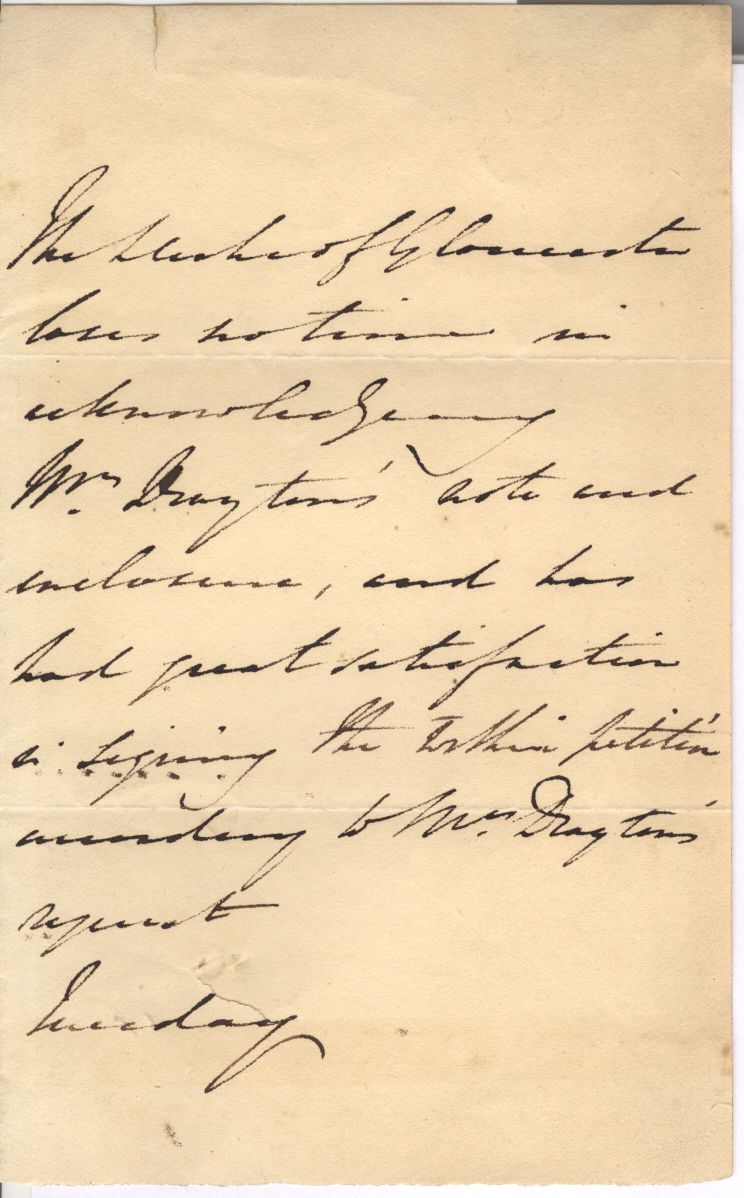 The Duke of Gloucester
loses no time in
acknowledging
Mrs Drayton's note and
enclosure, and has
had great satisfaction
in signing the within petition
according to Mrs Drayton's
request
Tuesday